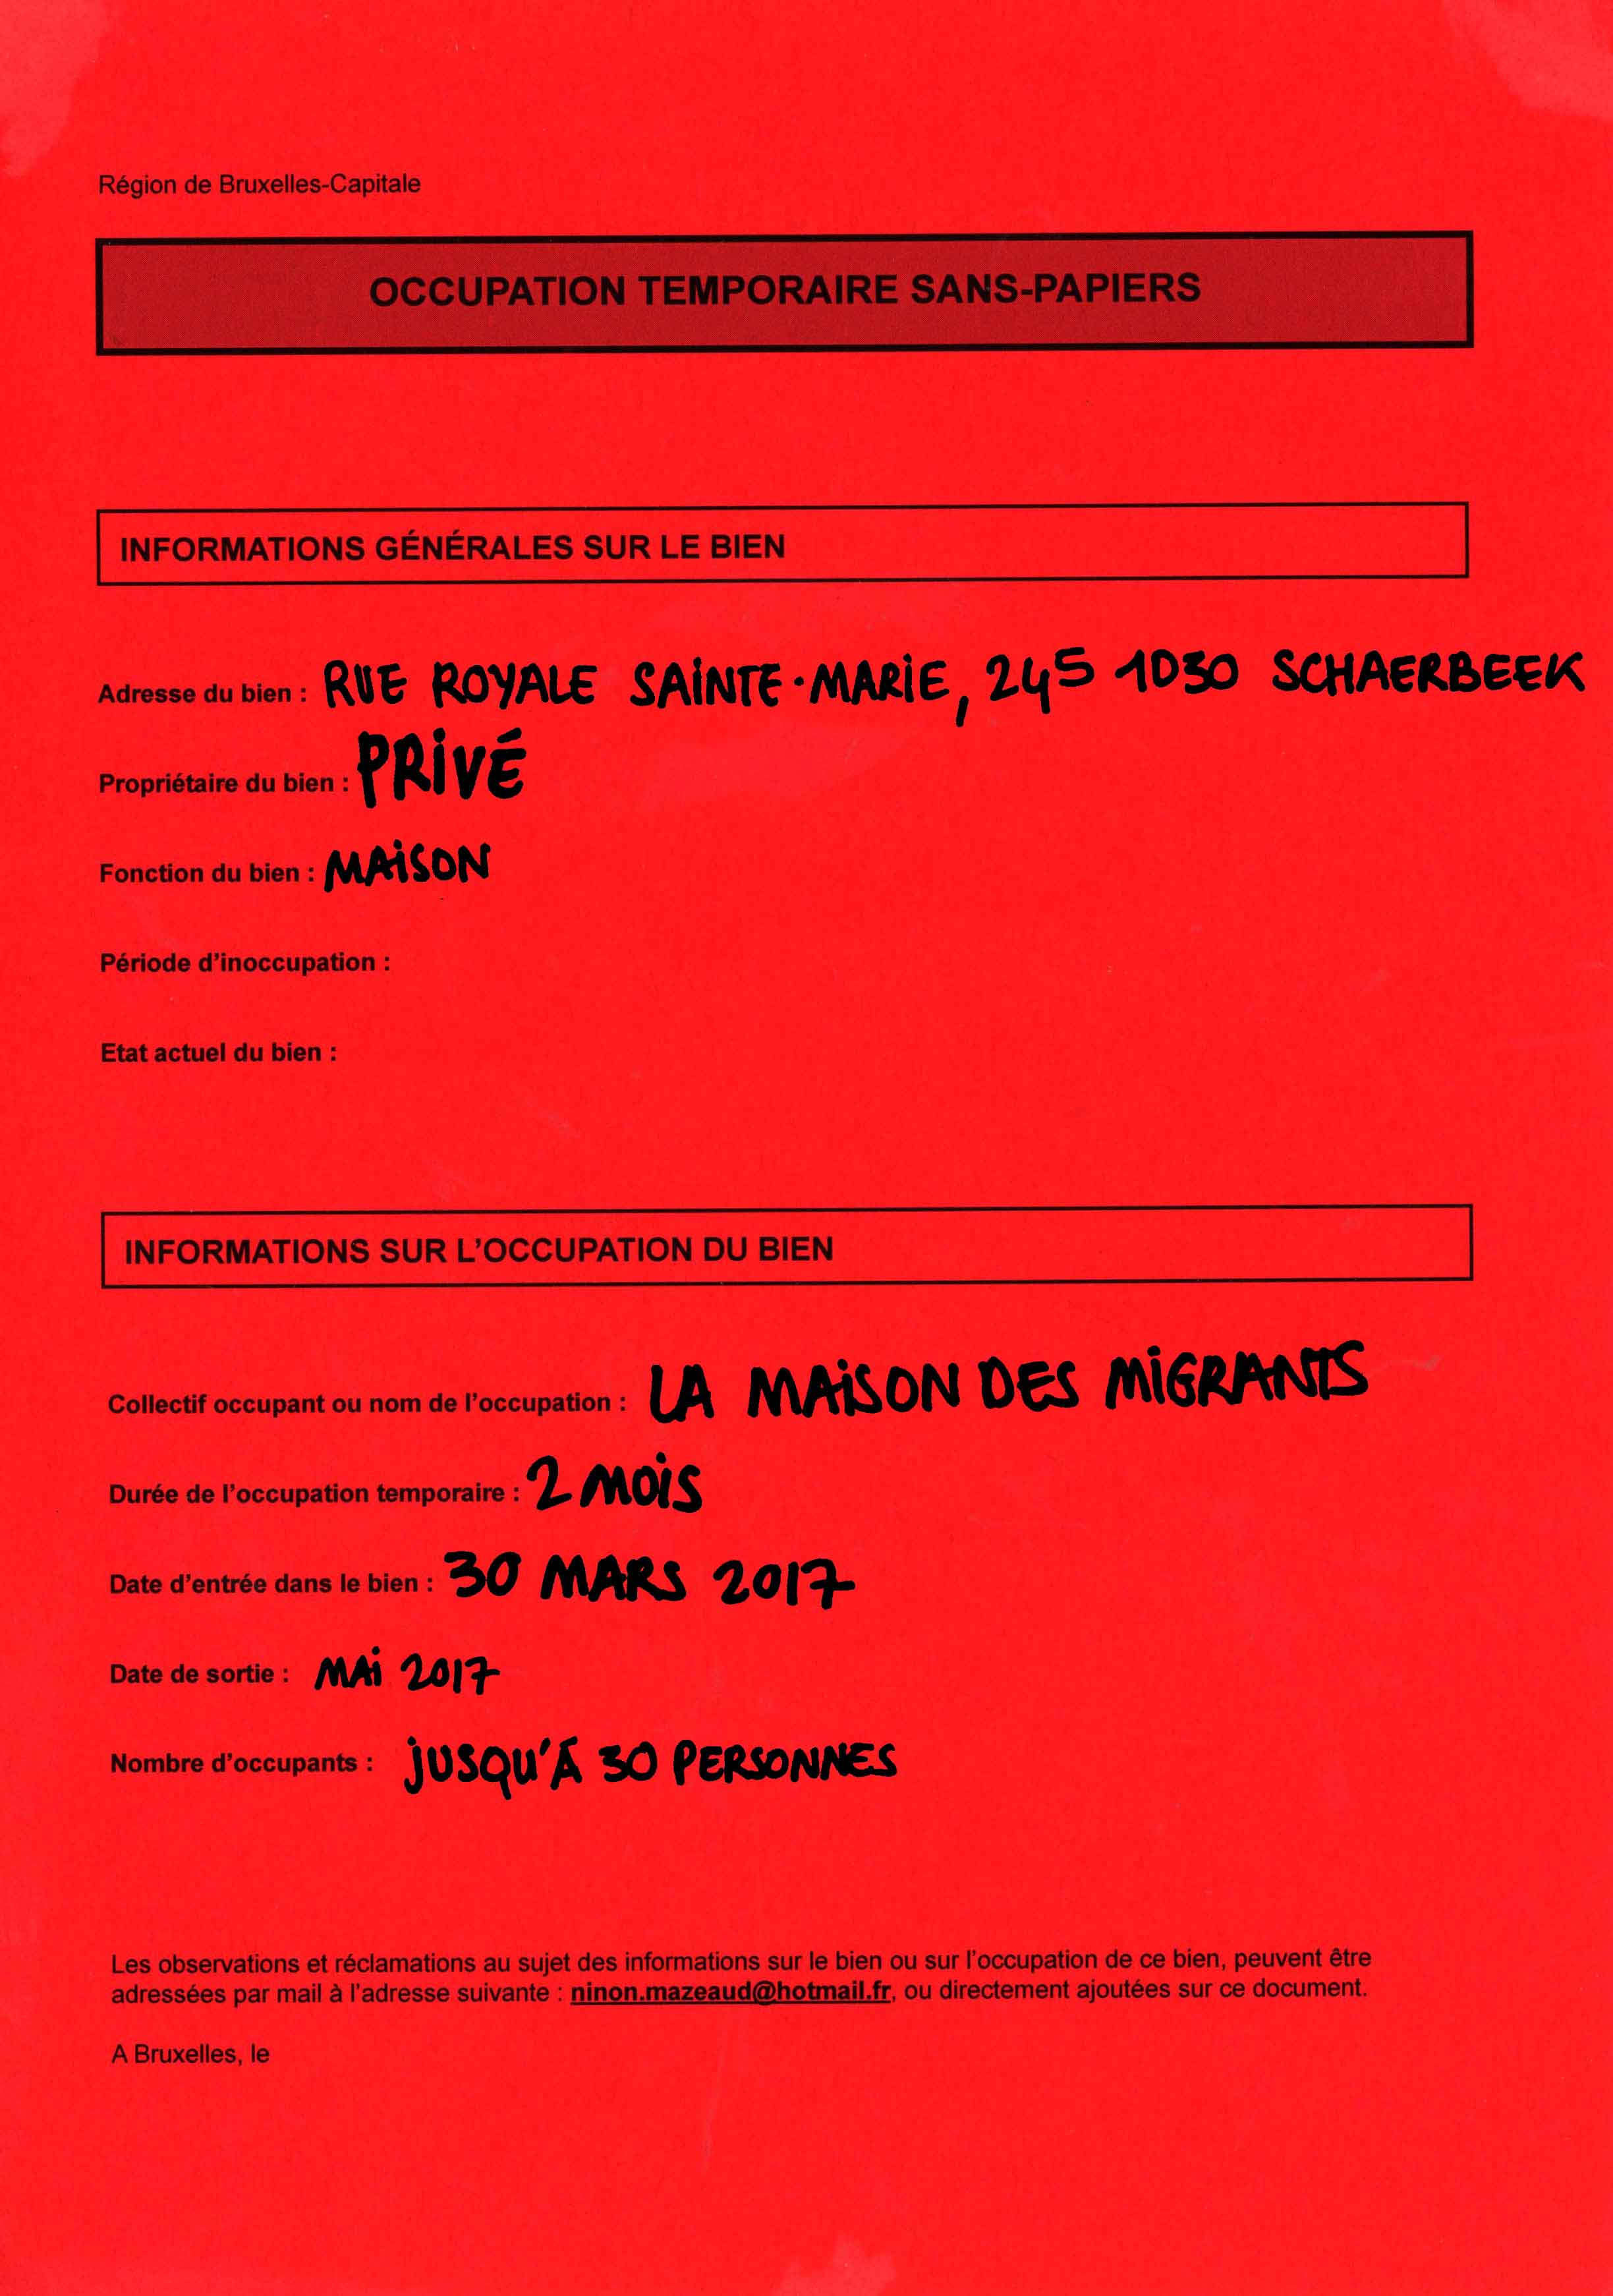 Région de Bruxelles-Capitale
OCCUPATION TEMPORAIRE SANS-PAPIERS
INFORMATIONS GÉNÉRALES SUR LE BIEN
Adresse du bien : RUE ROYALE SAINTE-MARIE, 245 1030 SCHAERBEEK
Propriétaire du bien : PRIVÉ
Fonction du bien : MAISON
Période d'inoccupation :
Etat actuel du bien :
INFORMATIONS SUR L'OCCUPATION DU BIEN
Collectif occupant ou nom de l'occupation : LA MAISON DES MIGRANTS
Durée de l'occupation temporaire : 2 MOIS
Date d'entrée dans le bien : 30 MARS 2017
Date de sortie : MAI 2017
Nombre d'occupants : JUSQU'À 30 PERSONNES
Les observations et réclamations au sujet des informations sur le bien ou sur l'occupation de ce bien, peuvent être
adressées par mail à l'adresse suivante : ninon.mazeaud@hotmail.fr, ou directement ajoutées sur ce document.
A Bruxelles, le